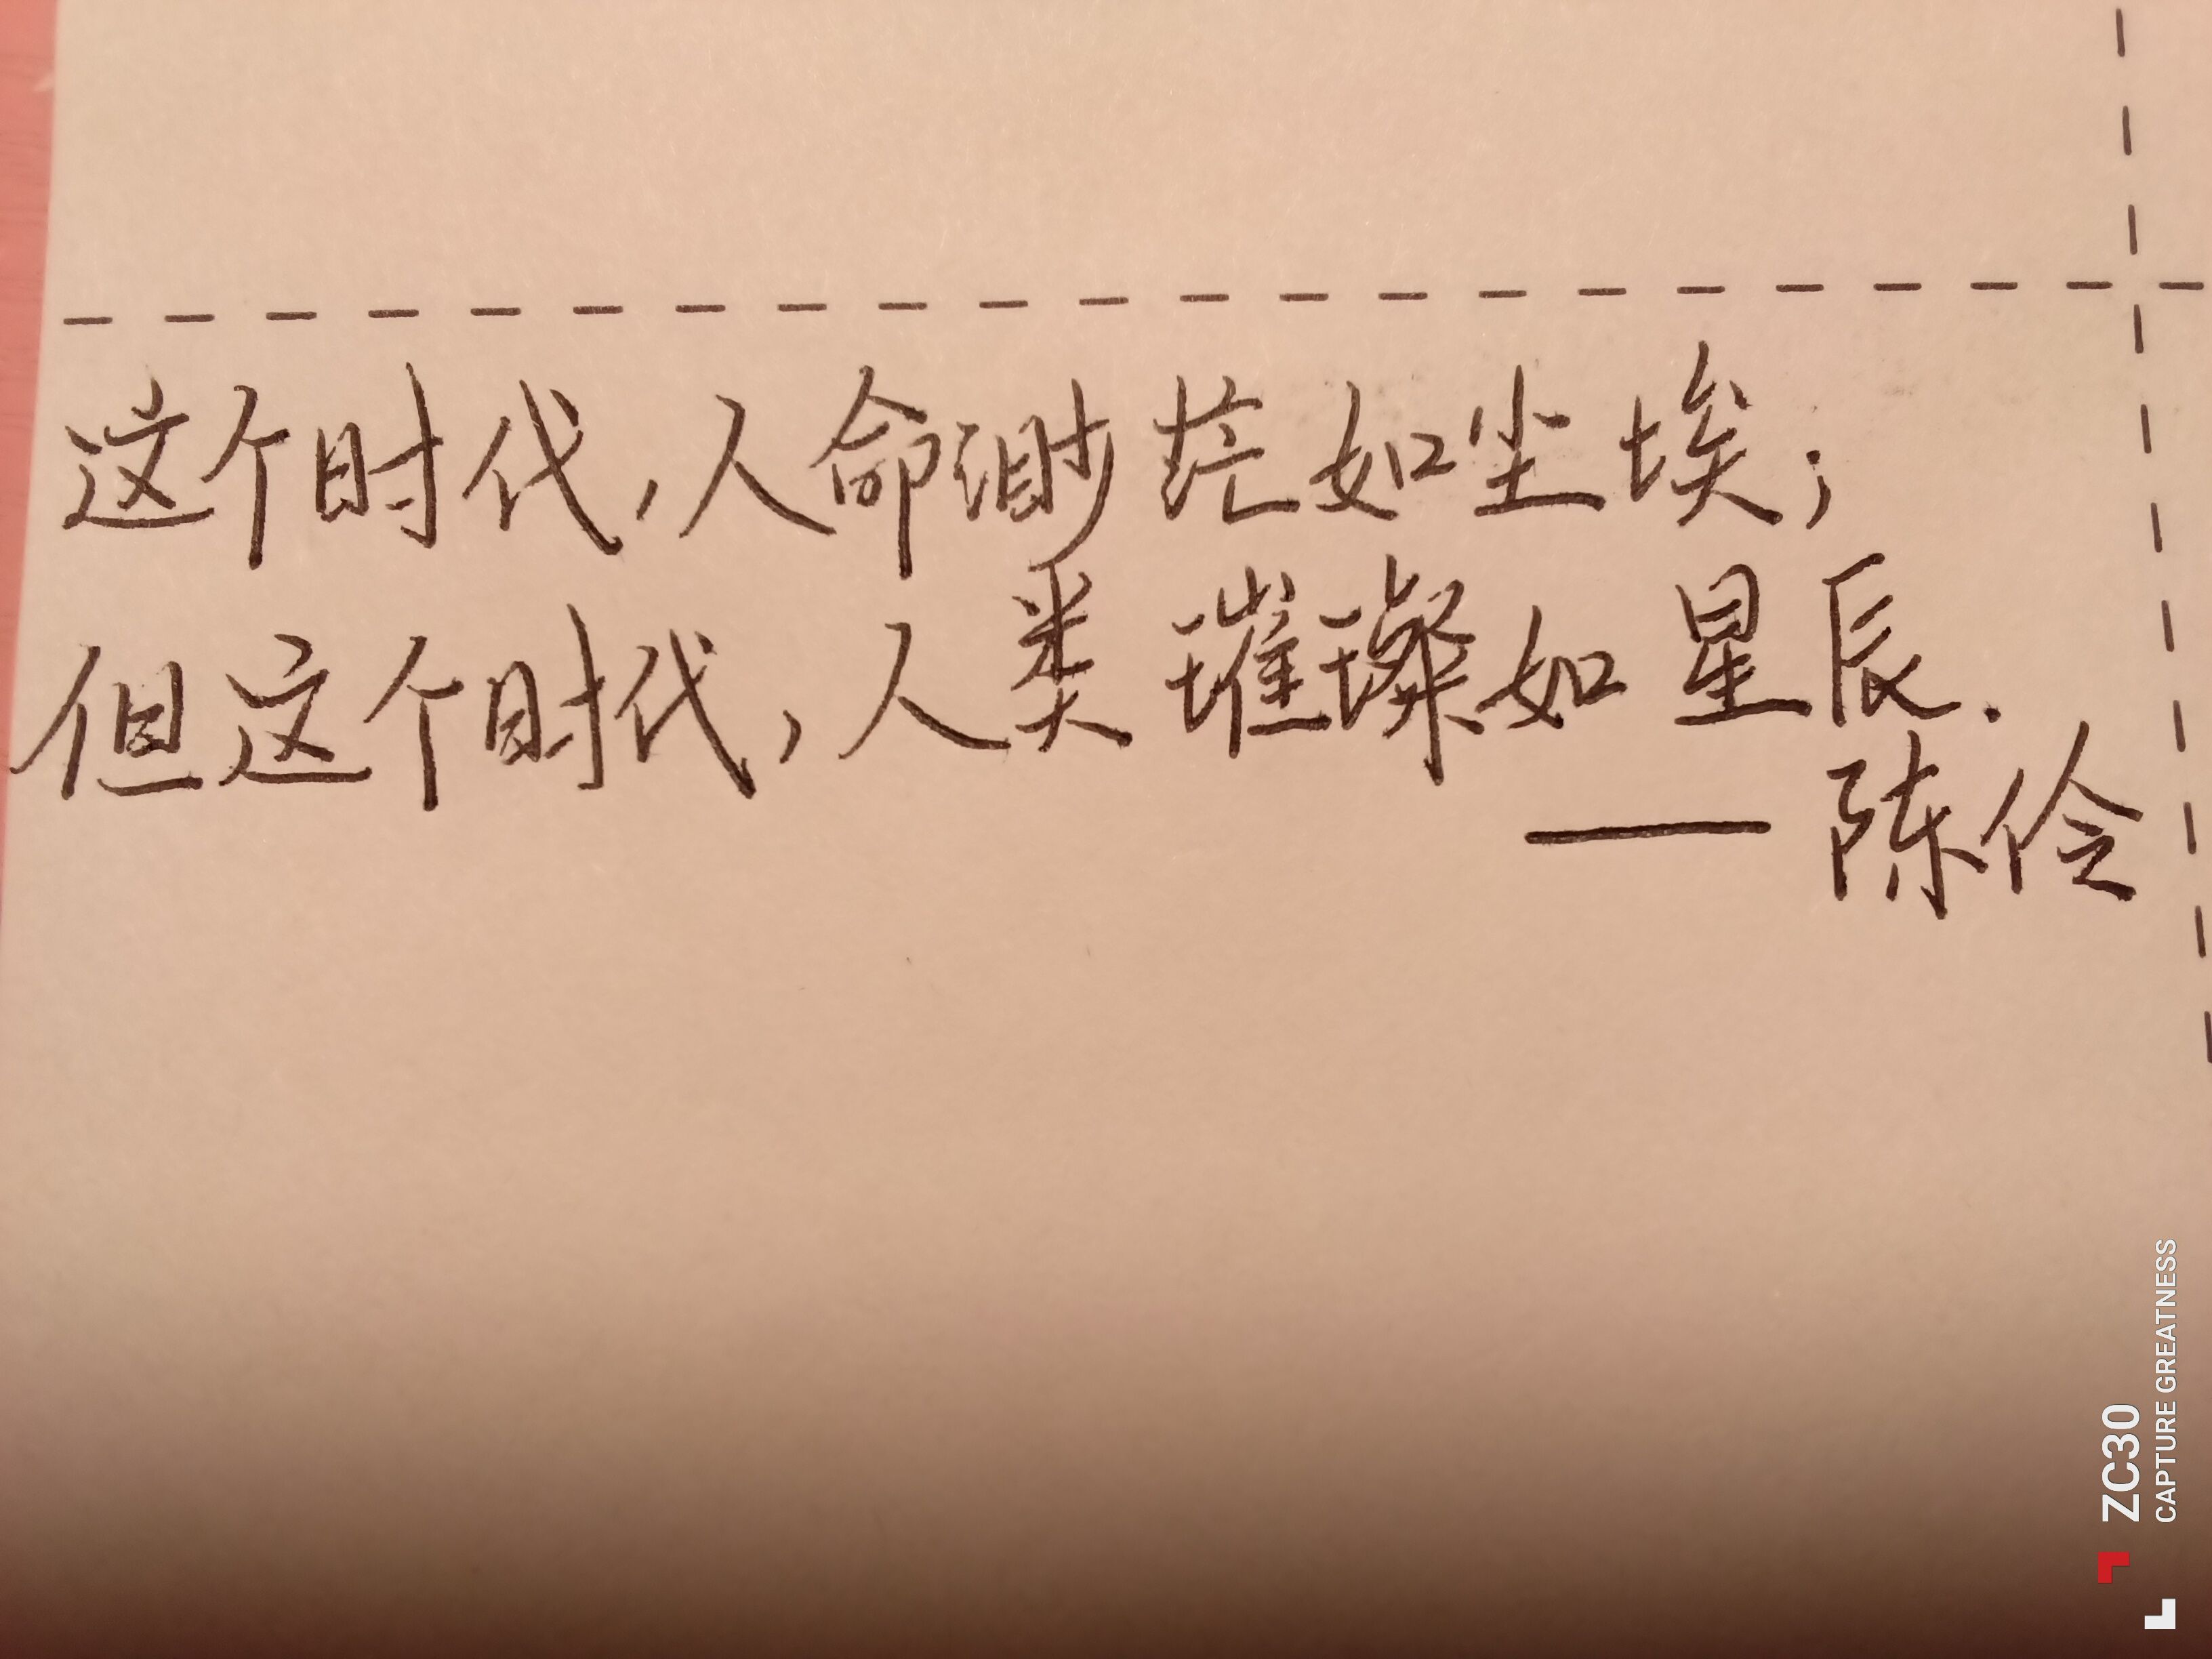 这个时代,人命渺茫如尘埃;
但这个时代,人类璀璨如星辰.
—陈伶
ZC30
CAPTURE GREATNESS